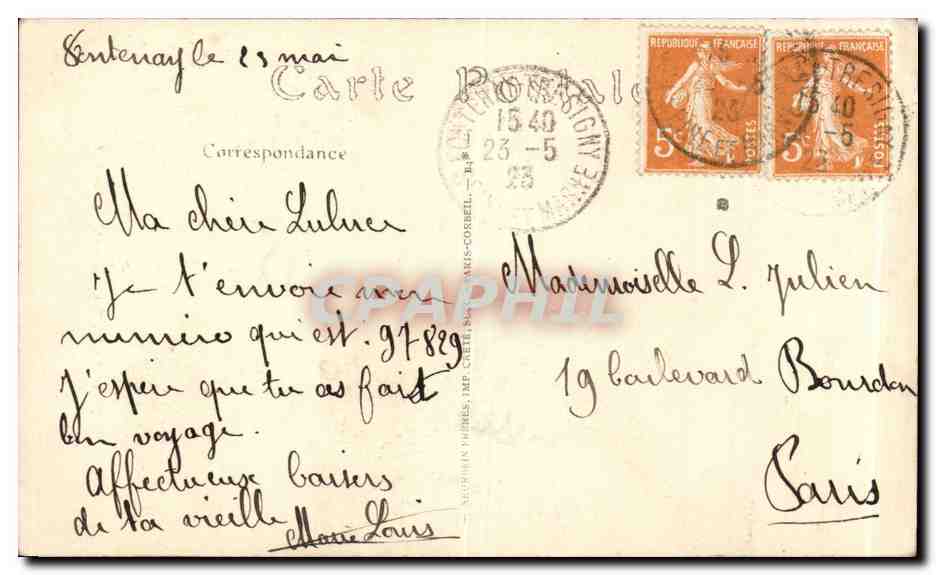 Fontenay le 23 mai
Carte Postale
Correspondance
Ma chère Luluce
Je t'envoie mon
numéro qui est. 97829
J'espère que tu as fait
bon voyage.
Affectueux baisers
de ta vieille
Marie Louis
BOURDIN FRÈRES, IMP. CRÉTÉ, PARIS-CORBEIL.
FONTENAY-TRESIGNY
15 40
23 -5
23
ET MARNE
REPUBLIQUE FRANÇAISE
5c
POSTES
REPUBLIQUE FRANÇAISE
5c
POSTES
15 40
-5
23
Mademoiselle L. Julien
19 boulevard Bourdon
Paris
CPAPHIL